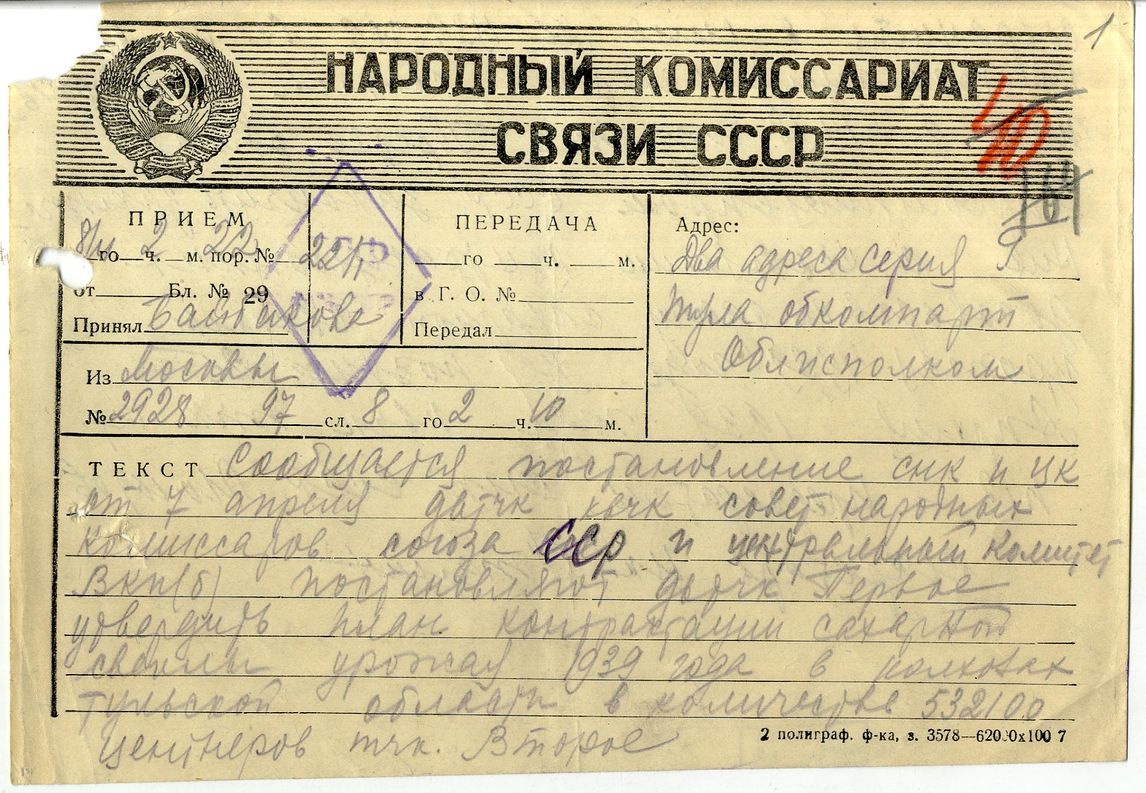 1
НАРОДНЫЙ КОМИССАРИАТ
СВЯЗИ СССР
ПРИЕМ
8/IV го 2 ч. 22 м. пор. № 22/1
от Бл. № 29
Принял
ПЕРЕДАЧА
го ч. м.
в Г. О. №
Передал
Адрес:
Два адреса серия
Тула обкомпарт
Облисполком
Из Москвы
№ 2928 97 сл. 8 го 2 ч. 10 м.
ТЕКСТ Сообщается постановление снк и цк
от 7 апреля двтчк квчк совет народных
комиссаров союза ССР и центральный комитет
Вкп(б) постановляют двтчк Первое
утвердить план контрактации сахарной
свеклы урожая 1939 года в колхозах
тульской области в количестве 532100
центнеров тчк. Второе
2 полиграф. ф-ка, з. 3578—62000х100 7